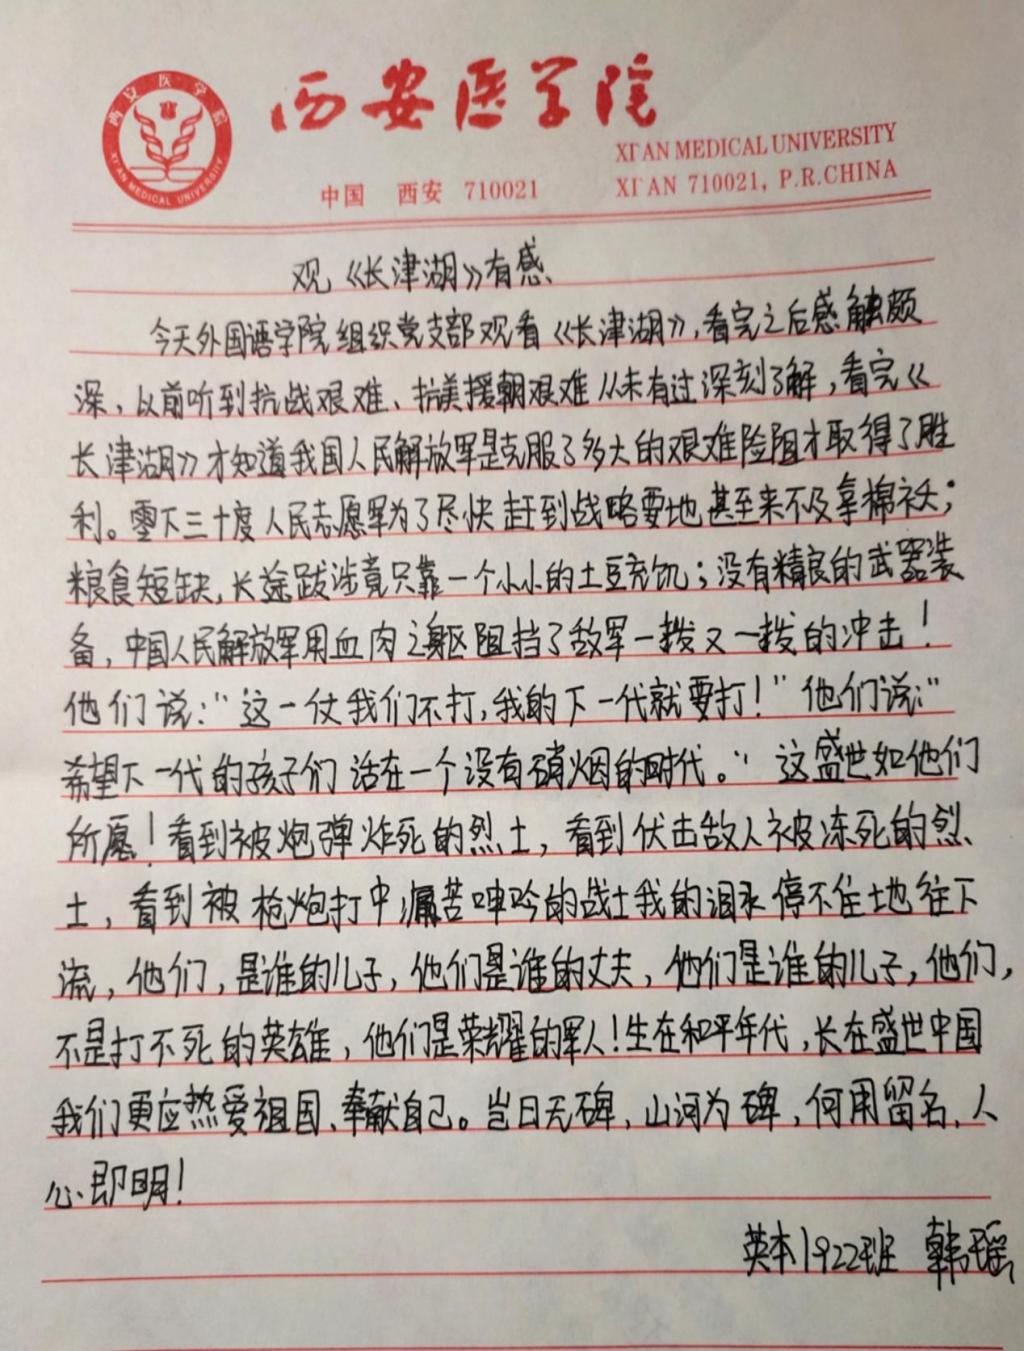 西安医学院
XI'AN MEDICAL UNIVERSITY
中国 西安 710021
XI'AN 710021, P.R.CHINA
西安医学院
XI'AN MEDICAL UNIVERSITY
观《长津湖》有感
今天外国语学院组织党支部观看《长津湖》,看完之后感触颇
深,以前听到抗战艰难、抗美援朝艰难从未有过深刻了解,看完《
长津湖》才知道我国人民解放军是克服了多大的艰难险阻才取得了胜
利。零下三十度人民志愿军为了尽快赶到战略要地甚至来不及拿棉袄;
粮食短缺,长途跋涉竟只靠一个小小的土豆充饥;没有精良的武器装
备,中国人民解放军用血肉之躯阻挡了敌军一拨又一拨的冲击!
他们说:"这一仗我们不打,我的下一代就要打!"他们说:"
希望下一代的孩子们活在一个没有硝烟的时代。"这盛世如他们
所愿!看到被炮弹炸死的烈士,看到伏击敌人被冻死的烈
士,看到被枪炮打中痛苦呻吟的战士我的泪水停不住地往下
流,他们,是谁的儿子,他们是谁的丈夫,他们是谁的儿子,他们,
不是打不死的英雄,他们是荣耀的军人!生在和平年代,长在盛世中国
我们更应热爱祖国、奉献自己。岂曰无碑,山河为碑,何用留名,人
心即明!
英本1922班 韩瑶